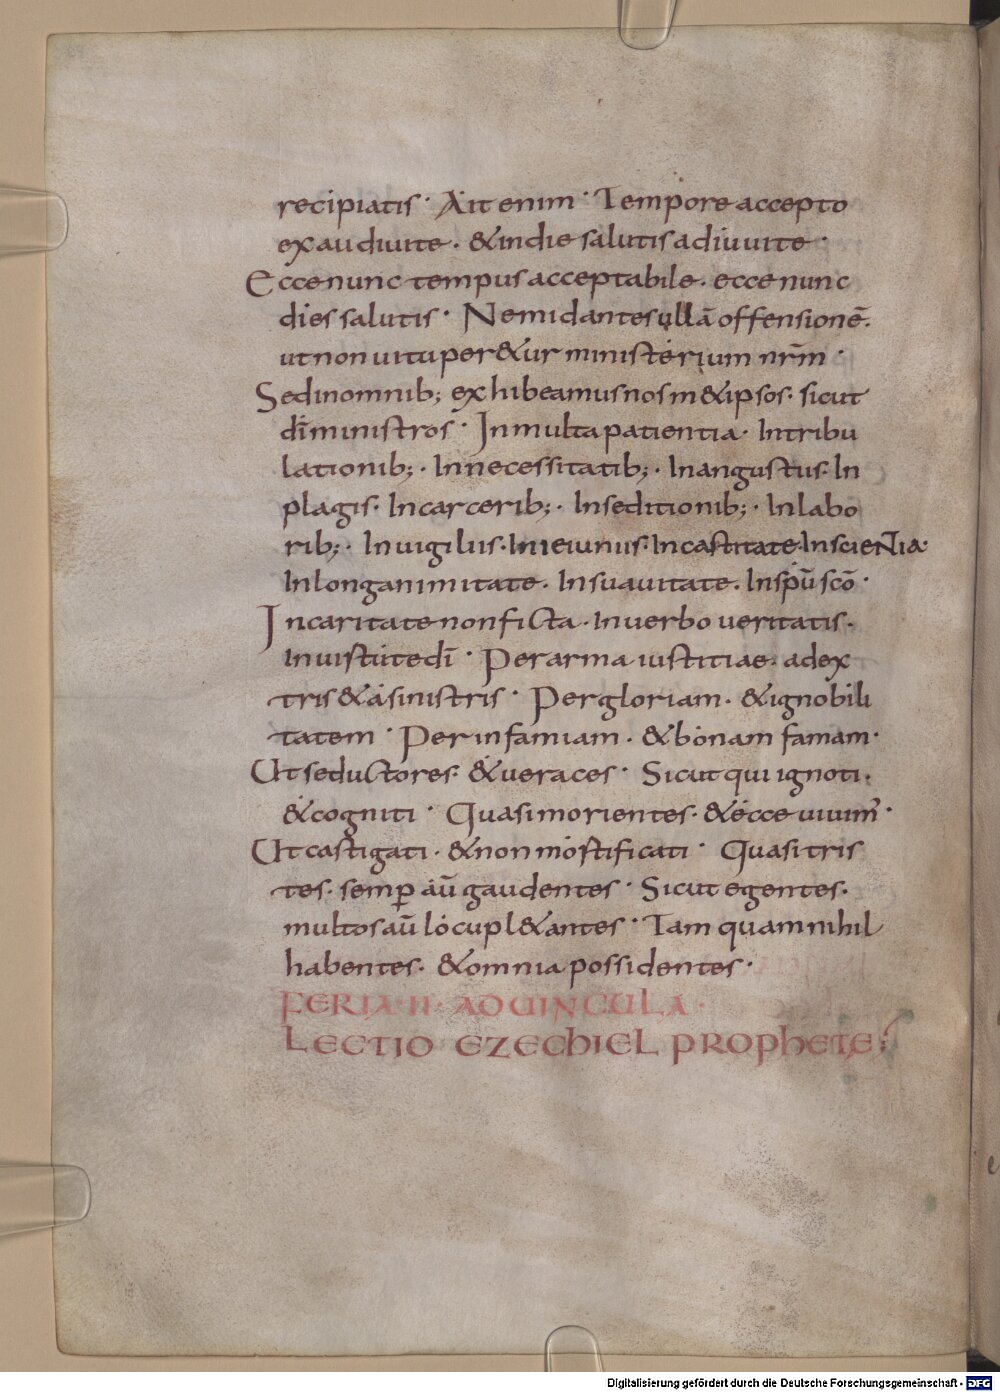 recipiatis · Ait enim · Tempore accepto
exaudiui te · & in die salutis adiuui te ·
Ecce nunc tempus acceptabile · ecce nunc
dies salutis · Nemi dantes ullā offensionē ·
ut non uituper&ur ministerium nr̄m ·
Sed in omnib; exhibeamus nosm&ipsos · sicut
dī ministros · In multa patientia · In tribu
lationib; · In necessitatib; · In angustiis · In
plagis · In carcerib; · In seditionib; · In labo
rib; · In uigiliis · In ieiuniis · In castitate · In scientia ·
In longanimitate · In suauitate · In spū scō ·
In caritate non ficta · In uerbo ueritatis ·
In uirtute dī · Per arma iustitiae · a dex
tris & a sinistris · Per gloriam · & ignobili
tatem · Per infamiam · & bonam famam ·
Ut seductores · & ueraces · Sicut qui ignoti ·
& cogniti · Quasi morientes · & ecce uiuim᾽ ·
Ut castigati · & non mortificati · Quasi tris
tes · semꝑ aū gaudentes · Sicut egentes ·
multos aū locupl&antes · Tam quam nihil
habentes · & omnia possidentes ·
FERIA · II · AD UINCULA ·
LECTIO EZECHIEL PROPHETE;
Digitalisierung gefördert durch die Deutsche Forschungsgemeinschaft - DFG